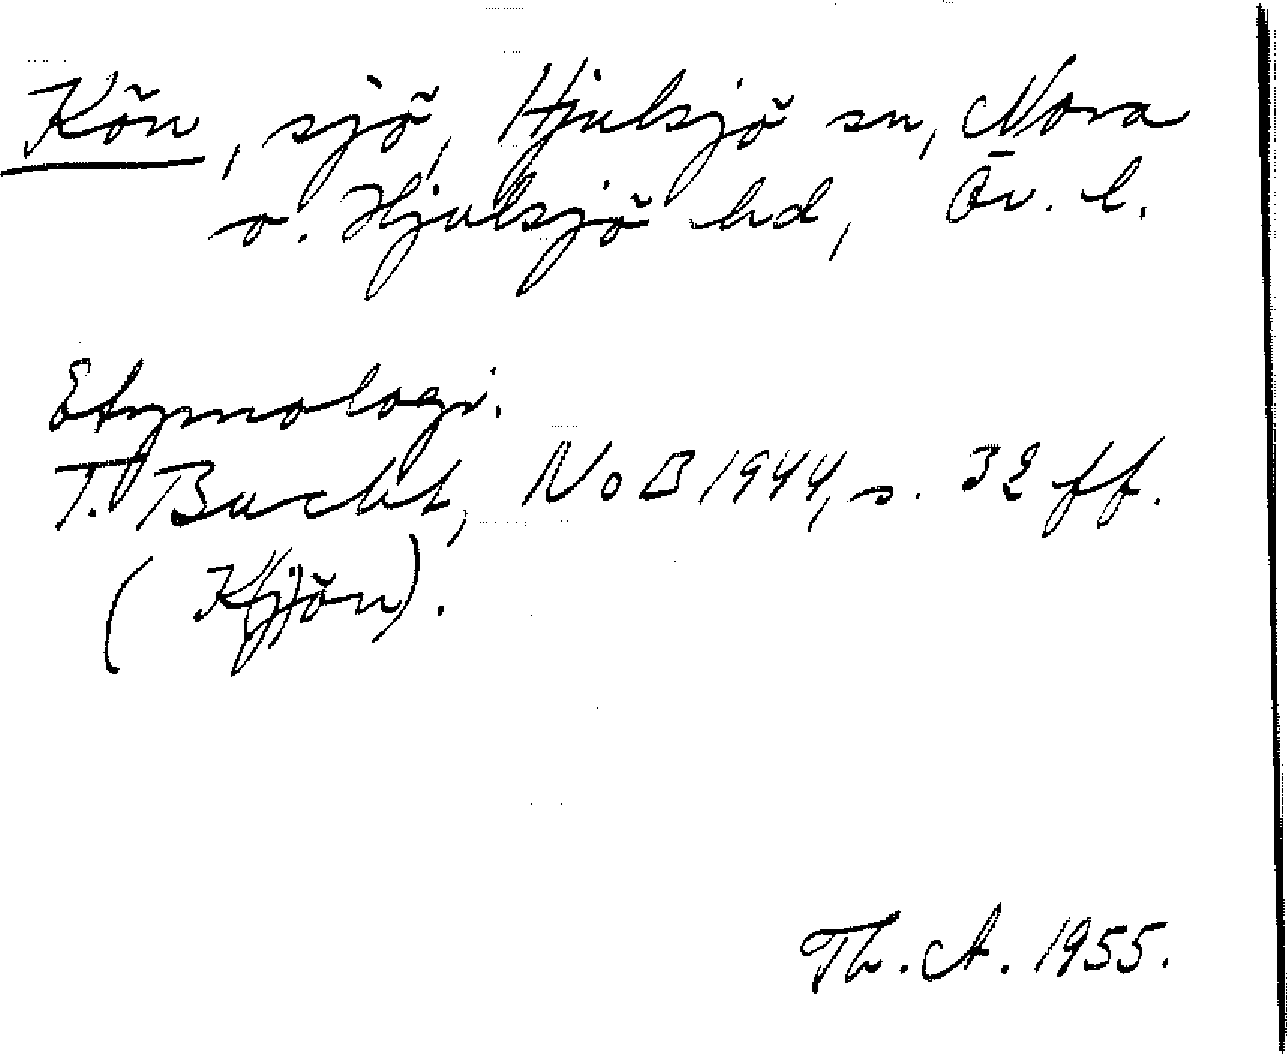 Kön, sjö, Hjulsjö sn, Nora
o. Hjulsjö hd, Ör. l.
Etymologi.
T. Bucht, NoB 1944, s. 32 ff.
(K(j)ön).
Th. A. 1955.